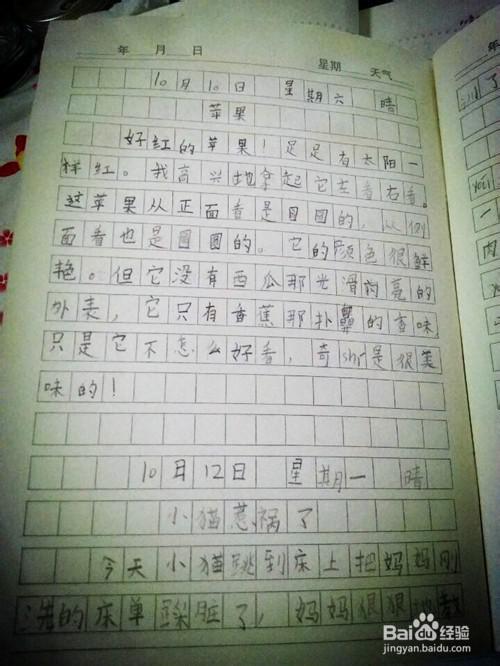 年 月 日 星期 天气
10月10日 星期六 晴
苹果
好红的苹果！足足有太阳一
样红。我高兴地拿起它左看右看。
这苹果从正面看是圆圆的，从侧
面看也是圆圆的。它的颜色很鲜
艳。但它没有西瓜那光滑的亮的
外表，它只有香蕉那扑鼻的香味，
只是它不怎么好看，奇shí是很美
味的！
10月12日 星期一 晴
小猫惹祸了
今天小猫跳到床上把妈妈刚
洗的床单踩脏了，妈妈狠狠地教
年
Baidu经验
jingyan.baidu.com